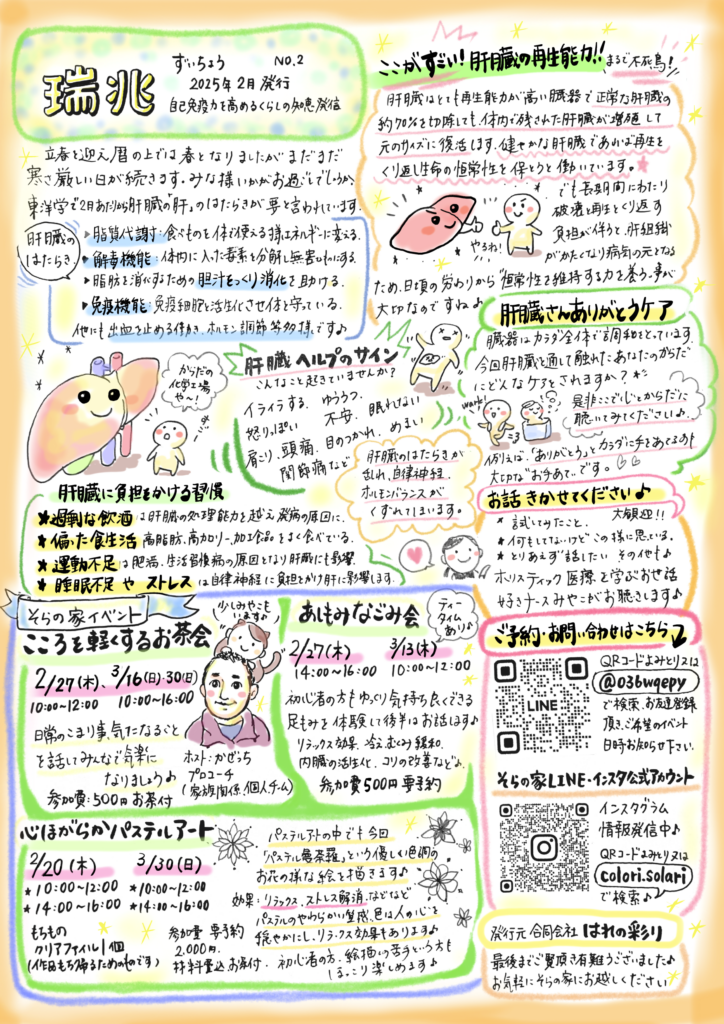 瑞兆
ずいちょう NO.2
2025年2月発行
自己免疫力を高めるくらしの知恵発信
立春を迎え暦の上では春となりましたがまだまだ
寒さ厳しい日が続きます。みな様いかがお過ごしでしょうか。
東洋学で2月あたりから肝臓の「肝」のはたらきが要と言われています。
肝臓の
はたらき
▶脂質代謝:食べものを体で使える様エネルギーに変える。
▶解毒機能:体内に入った毒素を分解し無害なものにする。
▶脂肪を消化するための胆汁をつくり消化を助ける。
▶免疫機能:免疫細胞を活性化させ体を守っている。
他にも出血を止める働き、ホルモン調節等多様です♪
からだの
化学工場
や〜!
肝臓ヘルプのサイン
こんなこと起きていませんか?
イライラする、ゆううつ、
怒りっぽい 不安、眠れない
肩こり、頭痛、目のつかれ、めまい
関節痛など
肝臓のはたらきが
乱れ、自律神経、
ホルモンバランスが
くずれてしまいます。
肝臓に負担をかける習慣
★過剰な飲酒は肝臓の処理能力を越え発病の原因に、
★偏った食生活 高脂肪、高カロリー、加工食品をよく食べている。
★運動不足は肥満、生活習慣病の原因となり肝臓にも影響
★睡眠不足やストレスは自律神経に負担をかけ肝に影響します。
ここがすごい!肝臓の再生能力!! まるで不死鳥!
肝臓はとても再生能力が高い臓器で正常な肝臓の
約70%を切除しても、体内で残された肝臓が増殖して
元のサイズに復活します。健やかな肝臓であれば再生を
くり返し生命の恒常性を保とうと働いています。★
でも長期間にわたり
破壊と再生をくり返す
負担が伴うと、肝組織
がかたくなり病気の元となる
やるね!
ため、日頃の労わりから恒常性を維持する力を養う事が
大切なのですね♪
肝臓さんありがとうケア
臓器はカラダ全体で調和をとっています。
今回肝臓を通して触れたあなたのからだ
にどんなケアをされますか?
work!
是非ここで心とからだに
聴いてみてください♪
例えば、「ありがとう」とカラダに手をあてるのも
大切な"お手あて"です。♡♡
お話きかせてください♪
*試してみたこと、 大歓迎!!
*何もしてないけどこの様に思っている。
*とりあえず話したい その他も♪
ホリスティック医療を学ぶお世話
好きナースみやこがお聴きします♪
そらの家イベント
こころを軽くするお茶会
少しみやこも
います♪
2/27(木)、3/16(日)・30(日)
10:00〜12:00 10:00〜16:00
日常のこまり事、気になること
を話してみんなで気楽に
なりましょう♪
参加費:500円お茶付
ホスト:かぜっち
プロコーチ
(家族関係、個人、チーム)
あしもみなごみ会
ティー
タイム
あり♪
2/27(木) 3/13(木)
14:00〜16:00 10:00〜12:00
初心者の方もゆっくり気持ち良くできる
足もみを体験して後半はお話します♪
リラックス効果、冷え、むくみ緩和、
内臓の活性化、コリの改善など♪
参加費500円 要予約
心ほがらかパステルアート
2/20(木) 3/30(日)
★10:00〜12:00 ★10:00〜12:00
★14:00〜16:00 ★14:00〜16:00
もちもの
クリアファイル1個
(作品もち帰るためのものです)
参加費 要予約
2,000円、
材料費込 お茶付、
パステルアートの中でも今回
「パステル曼荼羅」という優しい色調の
お花の様な絵を描きます♪
効果:リラックス、ストレス解消、などなど
パステルのやわらかい質感、色は人の心を
穏やかにし、リラックス効果もあります♪
初心者の方、絵描いの苦手という方も
ほっこり楽しめます♪
ご予約・お問い合わせはこちら
LINE
QRコードよみとり又は
@036wqepy
で検索、お友達登録
頂き、ご希望のイベント
日時お知らせ下さい。
そらの家LINE・インスタ公式アカウント
インスタグラム
情報発信中♪
QRコードよみとり又は
colori.solari
で検索♪
発行元 合同会社 はれの彩り
最後までご覧頂き有難うございました♪
お気軽にそらの家にお越しください